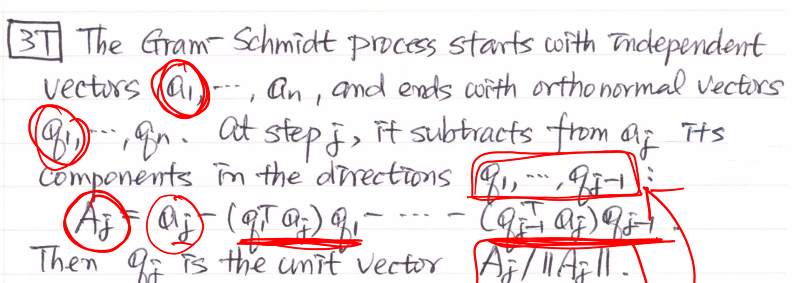 3T The Gram-Schmidt process starts with independent
vectors a₁, ⋯, aₙ, and ends with orthonormal vectors
q₁, ⋯, qₙ. At step j, it subtracts from aⱼ its
components in the directions q₁, ⋯, qⱼ₋₁ :
Aⱼ = aⱼ - (q₁ᵀ aⱼ) q₁ - ⋯ - (qⱼ₋₁ᵀ aⱼ) qⱼ₋₁ .
Then qⱼ is the unit vector Aⱼ / ‖Aⱼ‖.